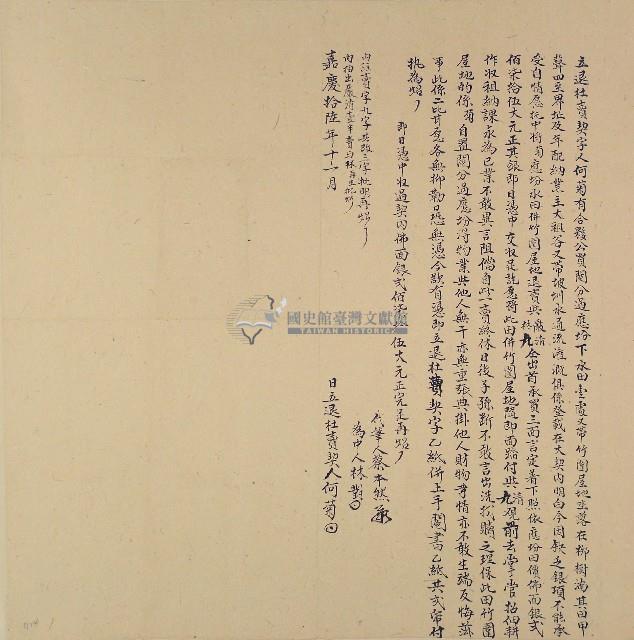 立退杜賣契字人何菊有合夥公買鬮分過應份下水田壹處又帶竹圍屋地坐落在柳樹湳其田甲
聲四至界址及年配納業主大租谷又帶坡圳水通流灌溉俱係登載在大契內明白今因缺乏銀項不能承
受自情愿托中將菊應份水田併竹圍屋地退賣與嚴清 九仝出首承買三面言定着下照依應份田價佛面銀弍
佰柒拾伍大元正其銀即日憑中交收足訖愿將此田併竹圍屋地隨即面踏付與清九觀前去掌管招佃耕
作收租納課永為己業不敢異言阻儅自此一賣終休日後子孫斷不敢言出洗找贖之理保此田竹圍
屋地的係菊自置鬮分過應份得物業與他人無干亦無重張典掛他人財物等情亦不敢生端反悔滋
事此係二比甘愿各無抑勒恐口無憑今欲有憑即立退杜賣契字乙紙併上手鬮書乙紙共弍帋付
执為炤
即日憑中收過契內佛面銀弍佰柒拾伍大元正完足再炤
內註賣字九字 批明再炤
內抽出嚴清 賣與林
嘉慶拾陸年十一月
代筆人蔡本然
為中人林對
日立退杜賣契人何菊
國史館臺灣文獻館
TAIWAN HISTORICA